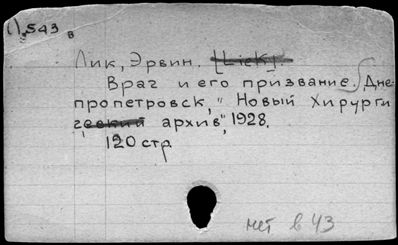 ().543 в
Лик, Эрвин. [Liek].
Враг и его призвание. Дне-
пропетровск, "Новый Хирурги
ческий архив", 1928.
120 стр.
нет в УЗ